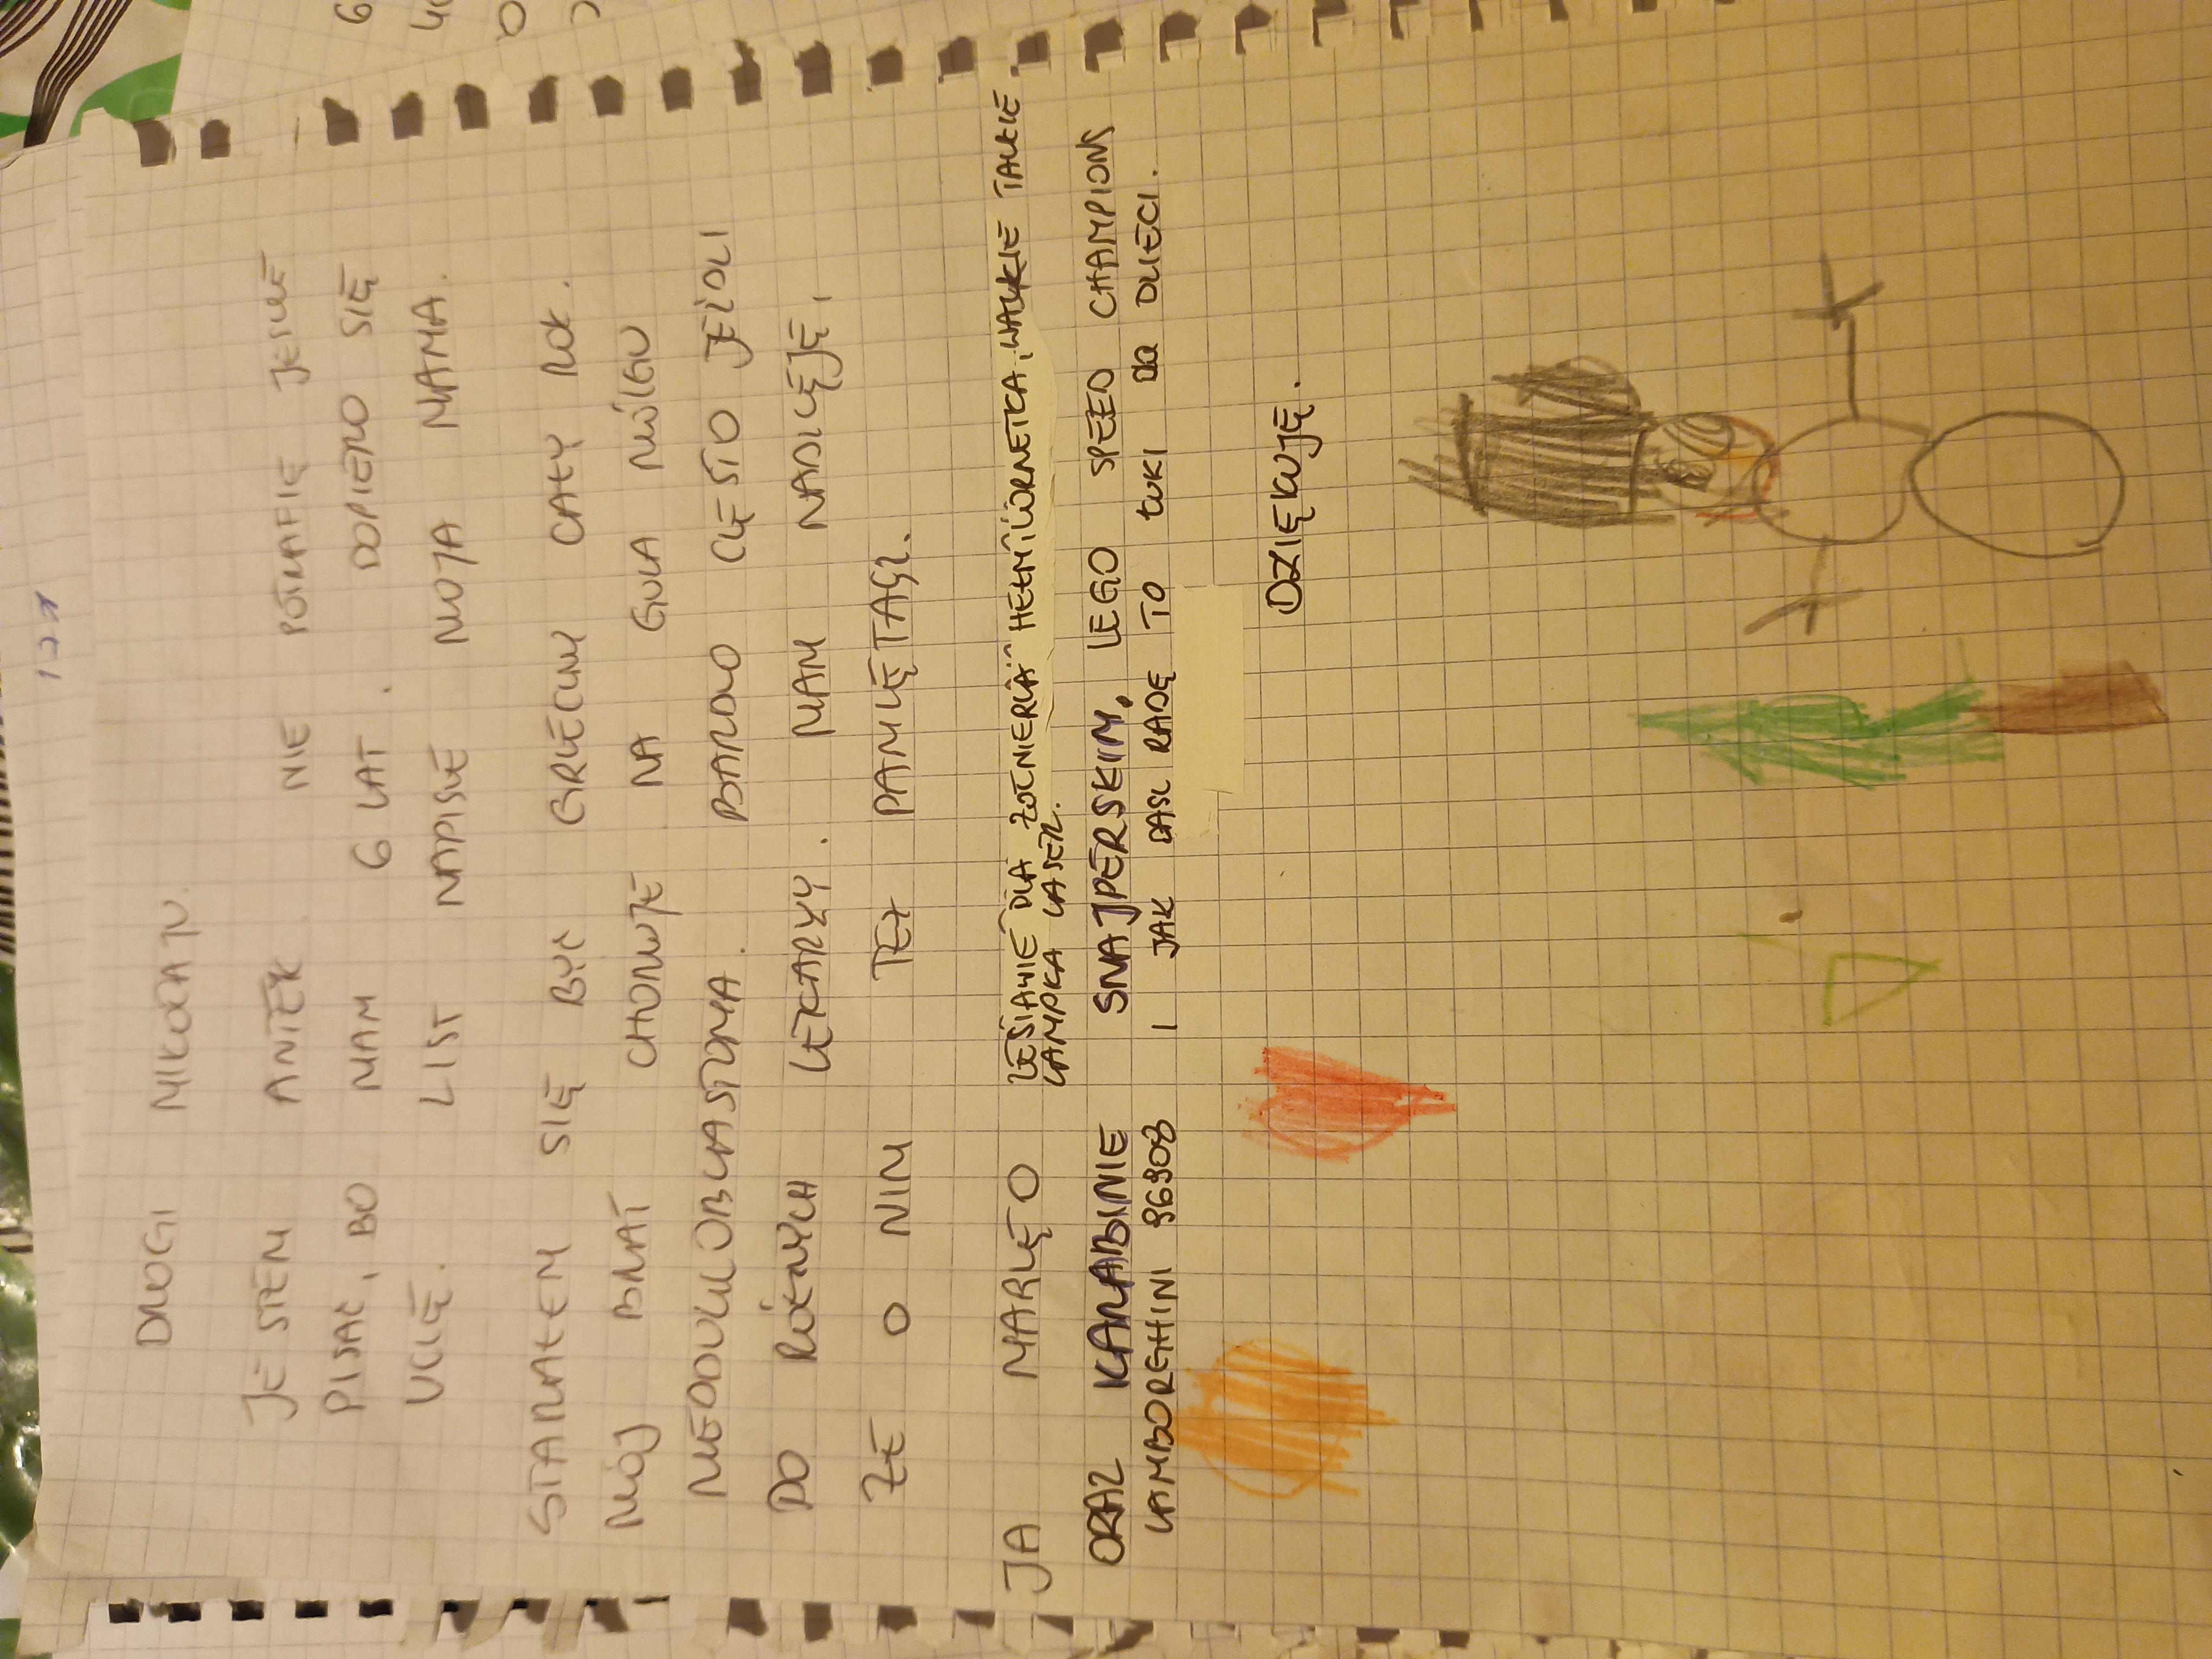 DROGI MIKOŁAJU.
JESTEM ANTEK. NIE POTRAFIĘ JESZCZE
PISAĆ, BO MAM 6 LAT. DOPIERO SIĘ
UCZĘ. LIST NAPISZE MOJA MAMA.
STARAŁEM SIĘ BYĆ GRZECZNY CAŁY ROK.
MÓJ BRAT CHORUJE NA GUZA MÓZGU
MEDDULLOBLASTOMA. BARDZO CZĘSTO JEŹDZI
DO RÓŻNYCH LEKARZY. MAM NADZIEJĘ,
ŻE O NIM TEŻ PAMIĘTASZ.
JA MARZĘ O ZESTAWIE DLA ŻOŁNIERZA HEŁM, LORNETKA, WALKIE TALKIE
LAMPKA LASER.
ORAZ KARABINIE SNAJPERSKIM, LEGO SPEED CHAMPIONS
LAMBORGHINI 96908 I JAK DASZ RADĘ TO ŁUKI DLA DZIECI.
DZIĘKUJĘ.